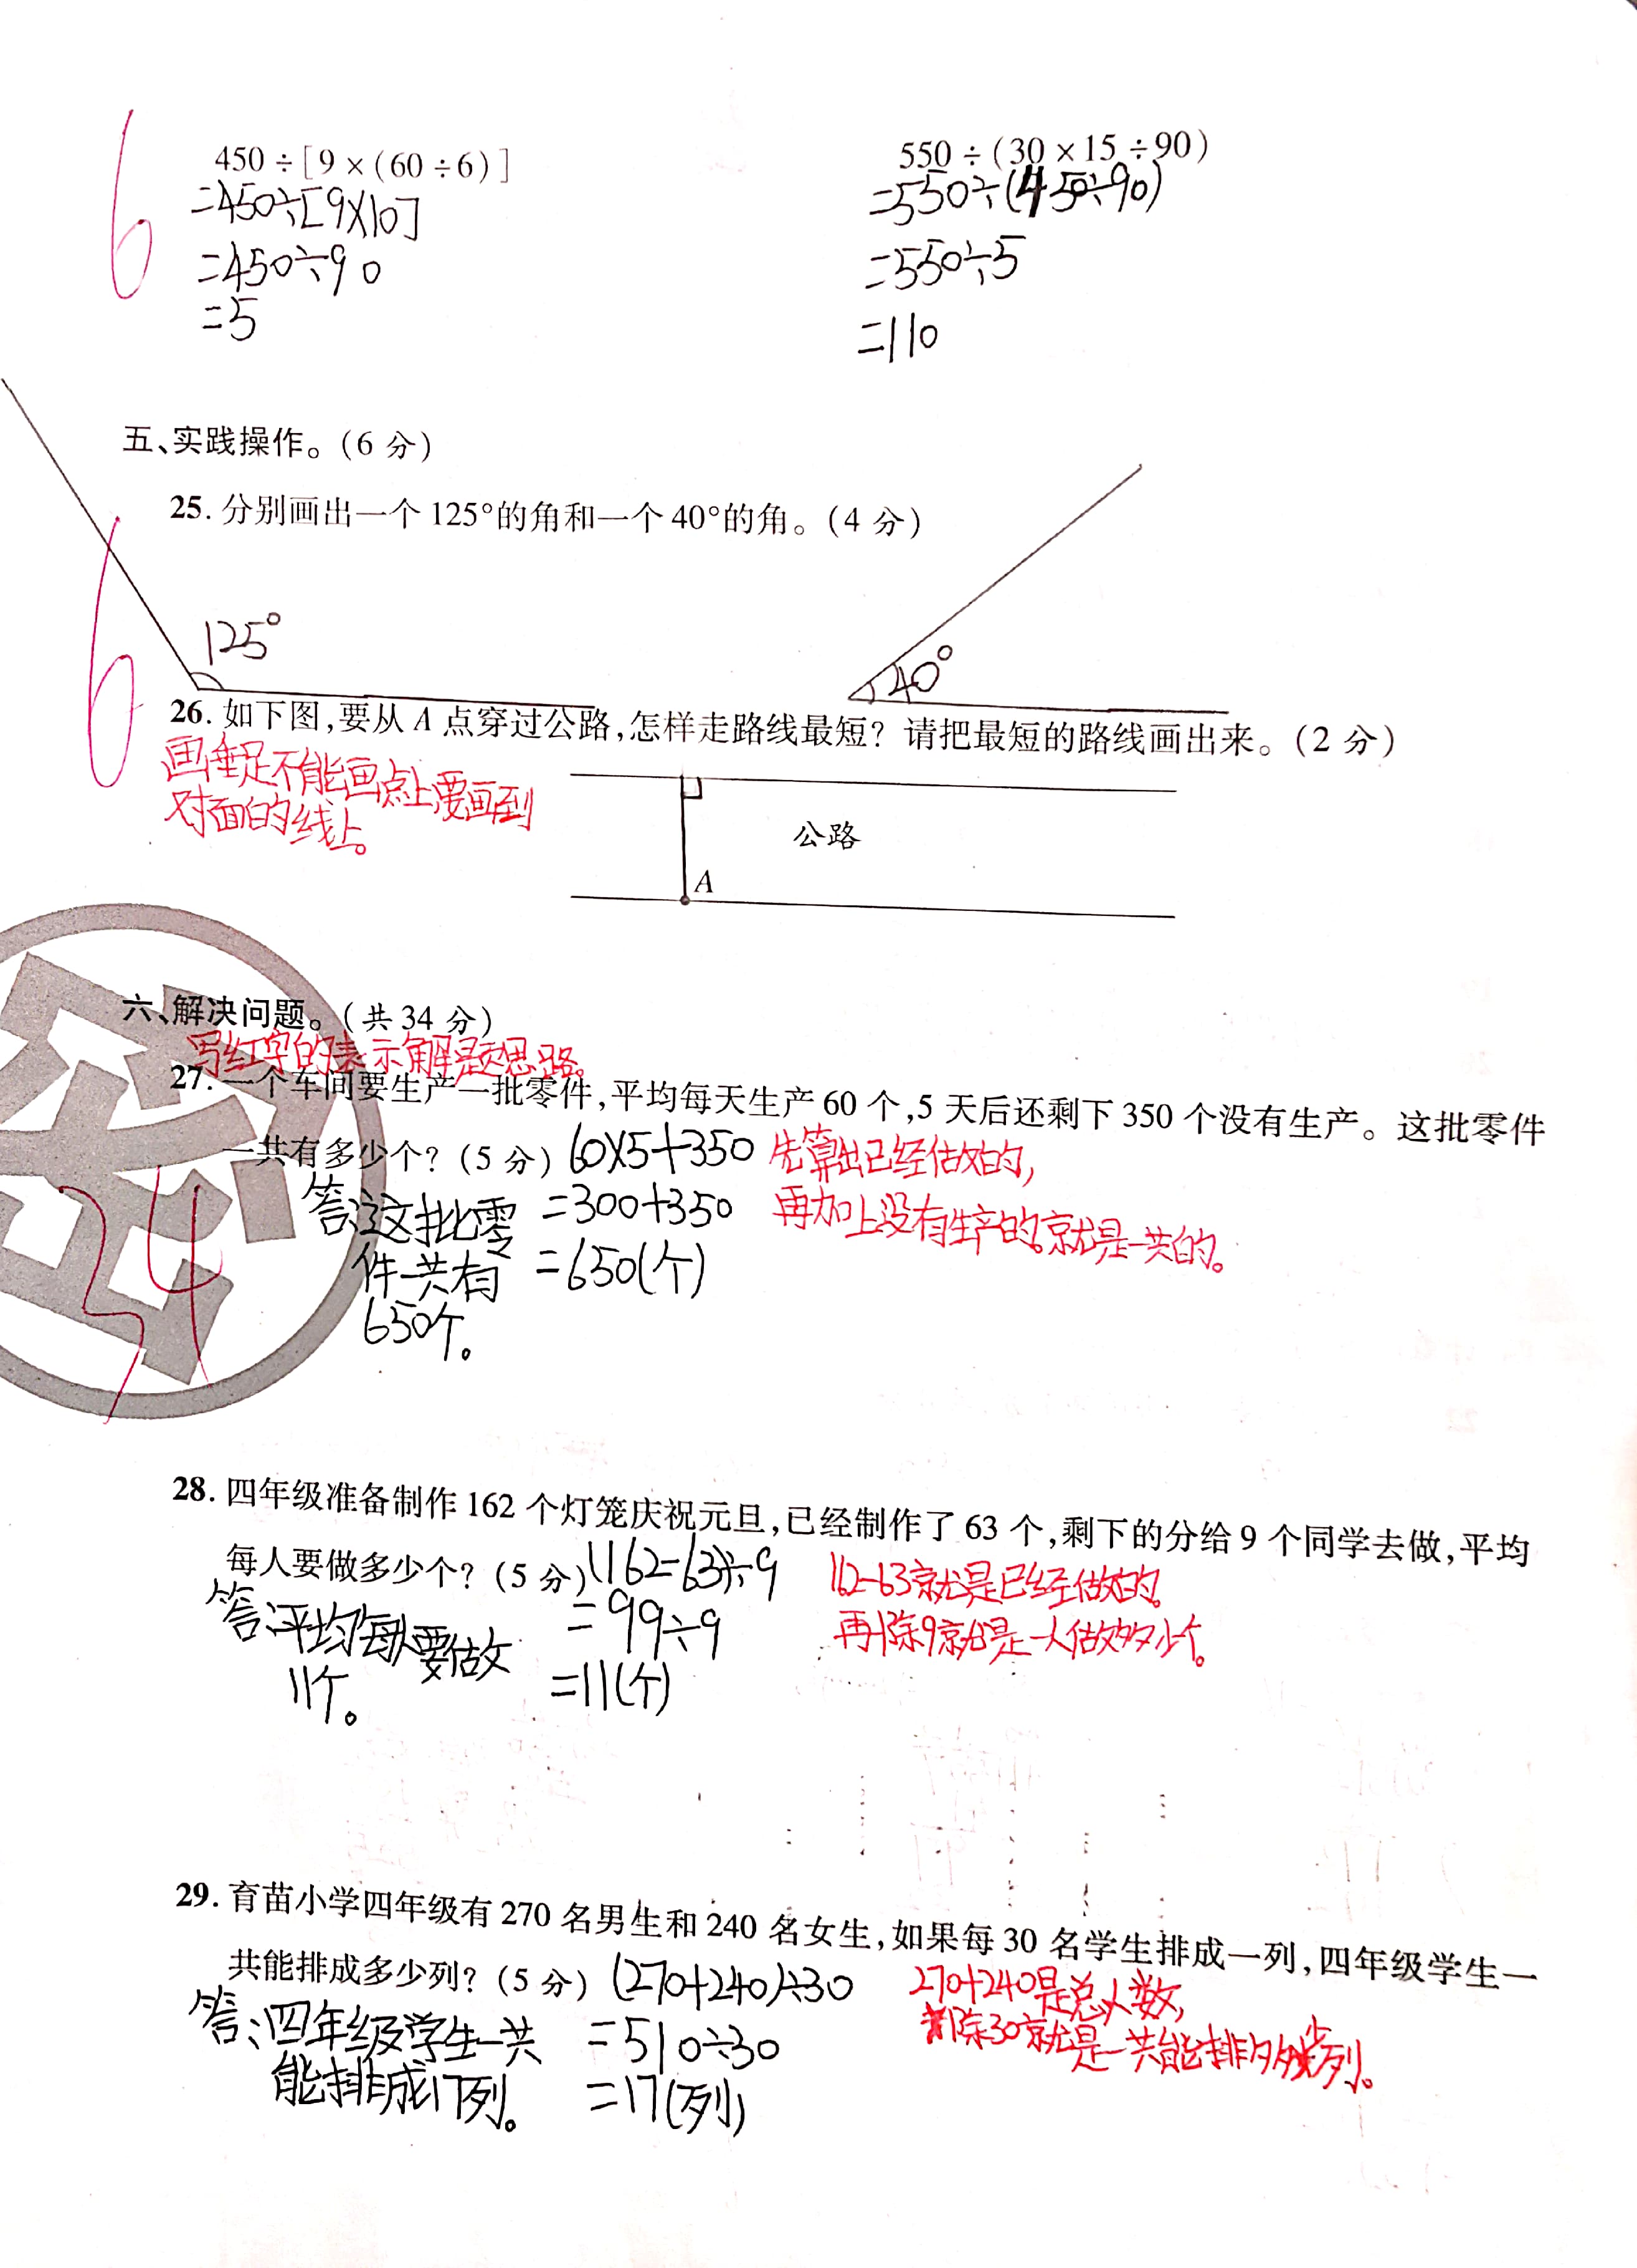 6
450÷[9×(60÷6)]
=450÷[9×10]
=450÷90
=5
550÷(30×15÷90)
=550÷(450÷90)
=550÷5
=110
五、实践操作。(6分)
25. 分别画出一个125°的角和一个40°的角。(4分)
6
125°
40°
26. 如下图,要从A点穿过公路,怎样走路线最短? 请把最短的路线画出来。(2分)
画垂足不能画点上,要画到
对面的线上。
公路
A
六、解决问题。(共34分)
写红字的表示解题思路。
27. 一个车间要生产一批零件,平均每天生产60个,5天后还剩下350个没有生产。这批零件
一共有多少个? (5分) 60×5+350 先算出已经做的,
=300+350 再加上没有生产的。就是一共的。
=650(个)
答:这批零
件一共有
650个。
34
28. 四年级准备制作162个灯笼庆祝元旦,已经制作了63个,剩下的分给9个同学去做,平均
每人要做多少个? (5分) (162-63)÷9 162-63就是已经做的。
=99÷9 再除9就是一人做多少个。
=11(个)
答:平均每人要做
11个。
29. 育苗小学四年级有270名男生和240名女生,如果每30名学生排成一列,四年级学生一
共能排成多少列? (5分) (270+240)÷30 270+240是总人数,
=510÷30 除30就是一共能排多少列。
=17(列)
答:四年级学生一共
能排成17列。